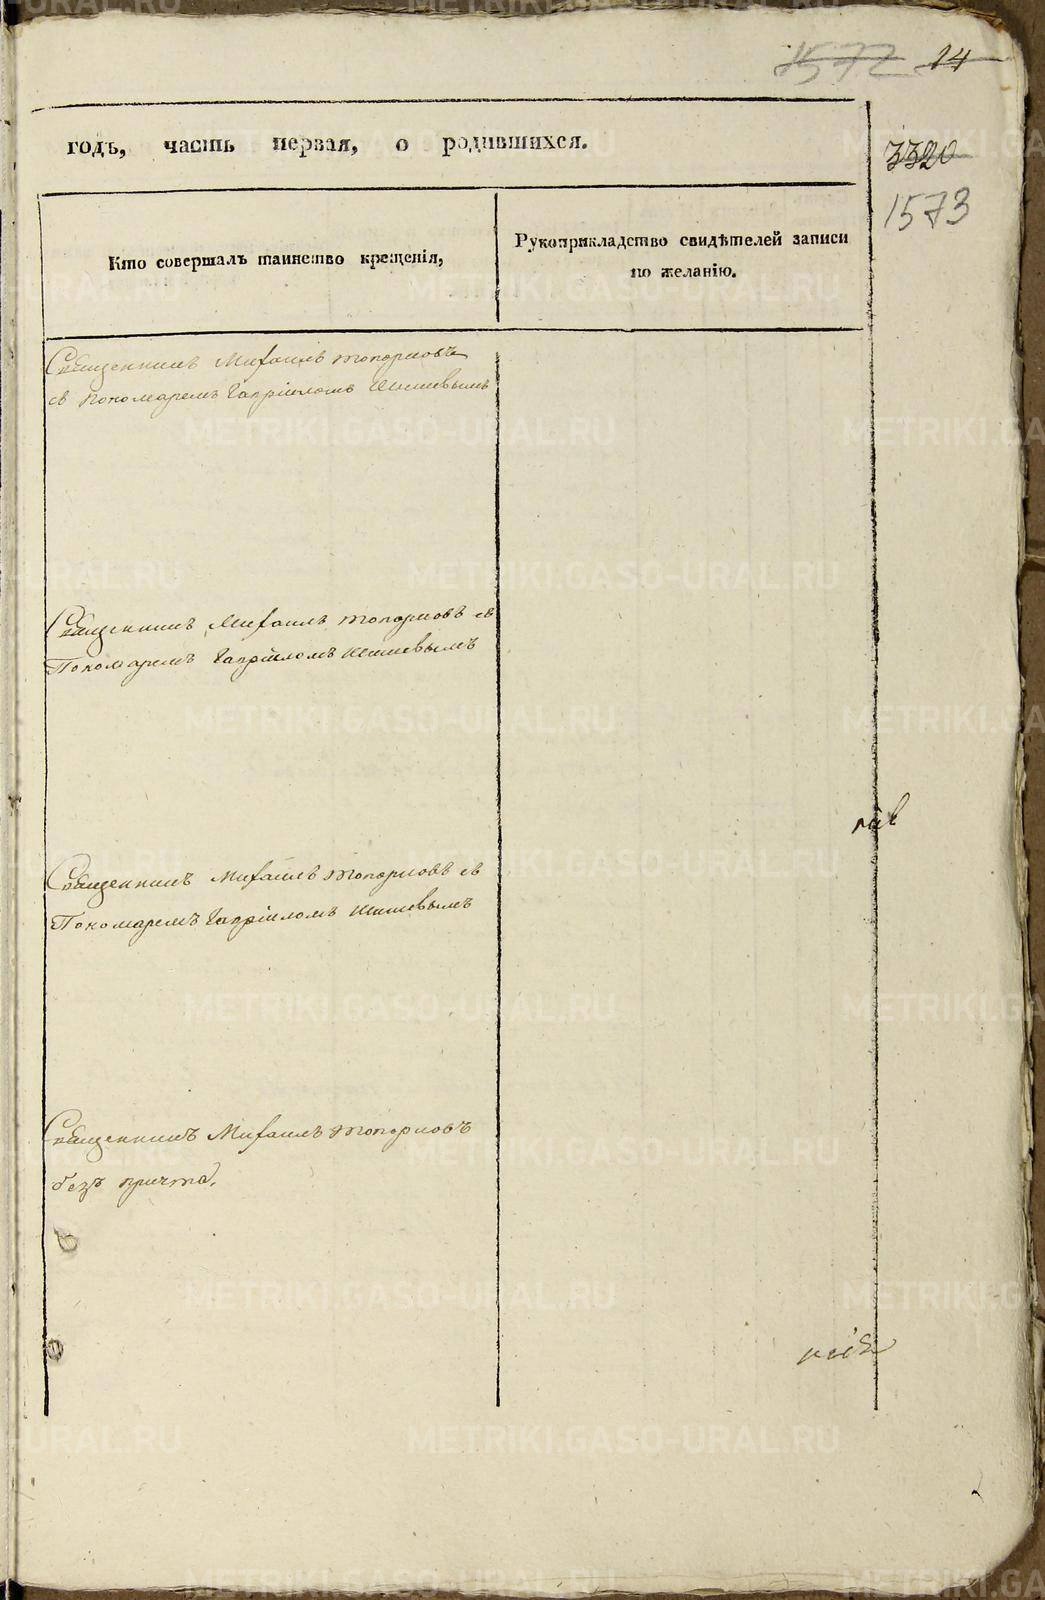 1572 14
годъ, часть первая, о родившихся.
3320
1573
Кто совершалъ таинство крещенія,
Рукоприкладство свидѣтелей записи
по желанію.
Священникъ Михаилъ Топорковъ
съ пономаремъ Гавріиломъ Шишевымъ
Священникъ Михаилъ Топорковъ съ
Пономаремъ Гавріиломъ Шишевымъ
Священникъ Михаилъ Топорковъ съ
Пономаремъ Гавріиломъ Шишевымъ
Священникъ Михаилъ Топорковъ
безъ причта.
METRIKI.GASO-URAL.RU